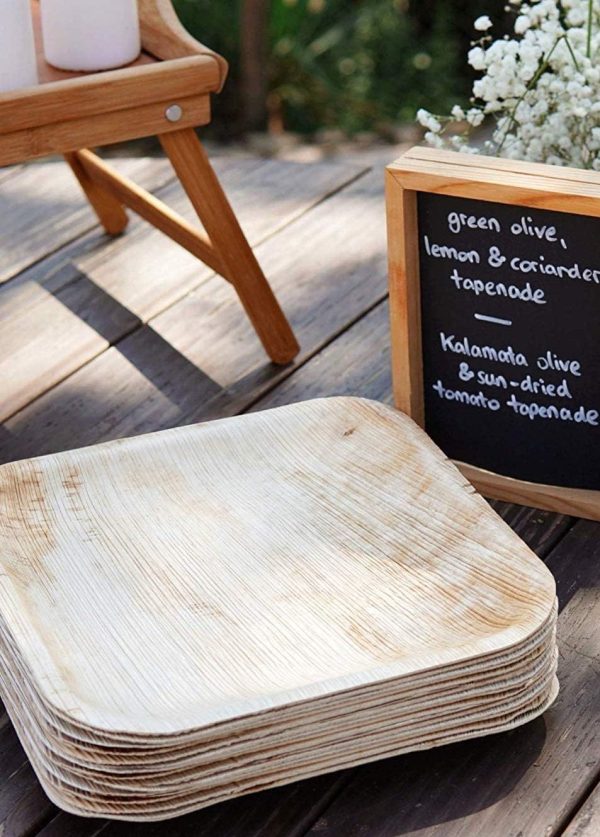 green olive,
lemon & coriander
tapenade
—
Kalamata olive
& sun-dried
tomato tapenade